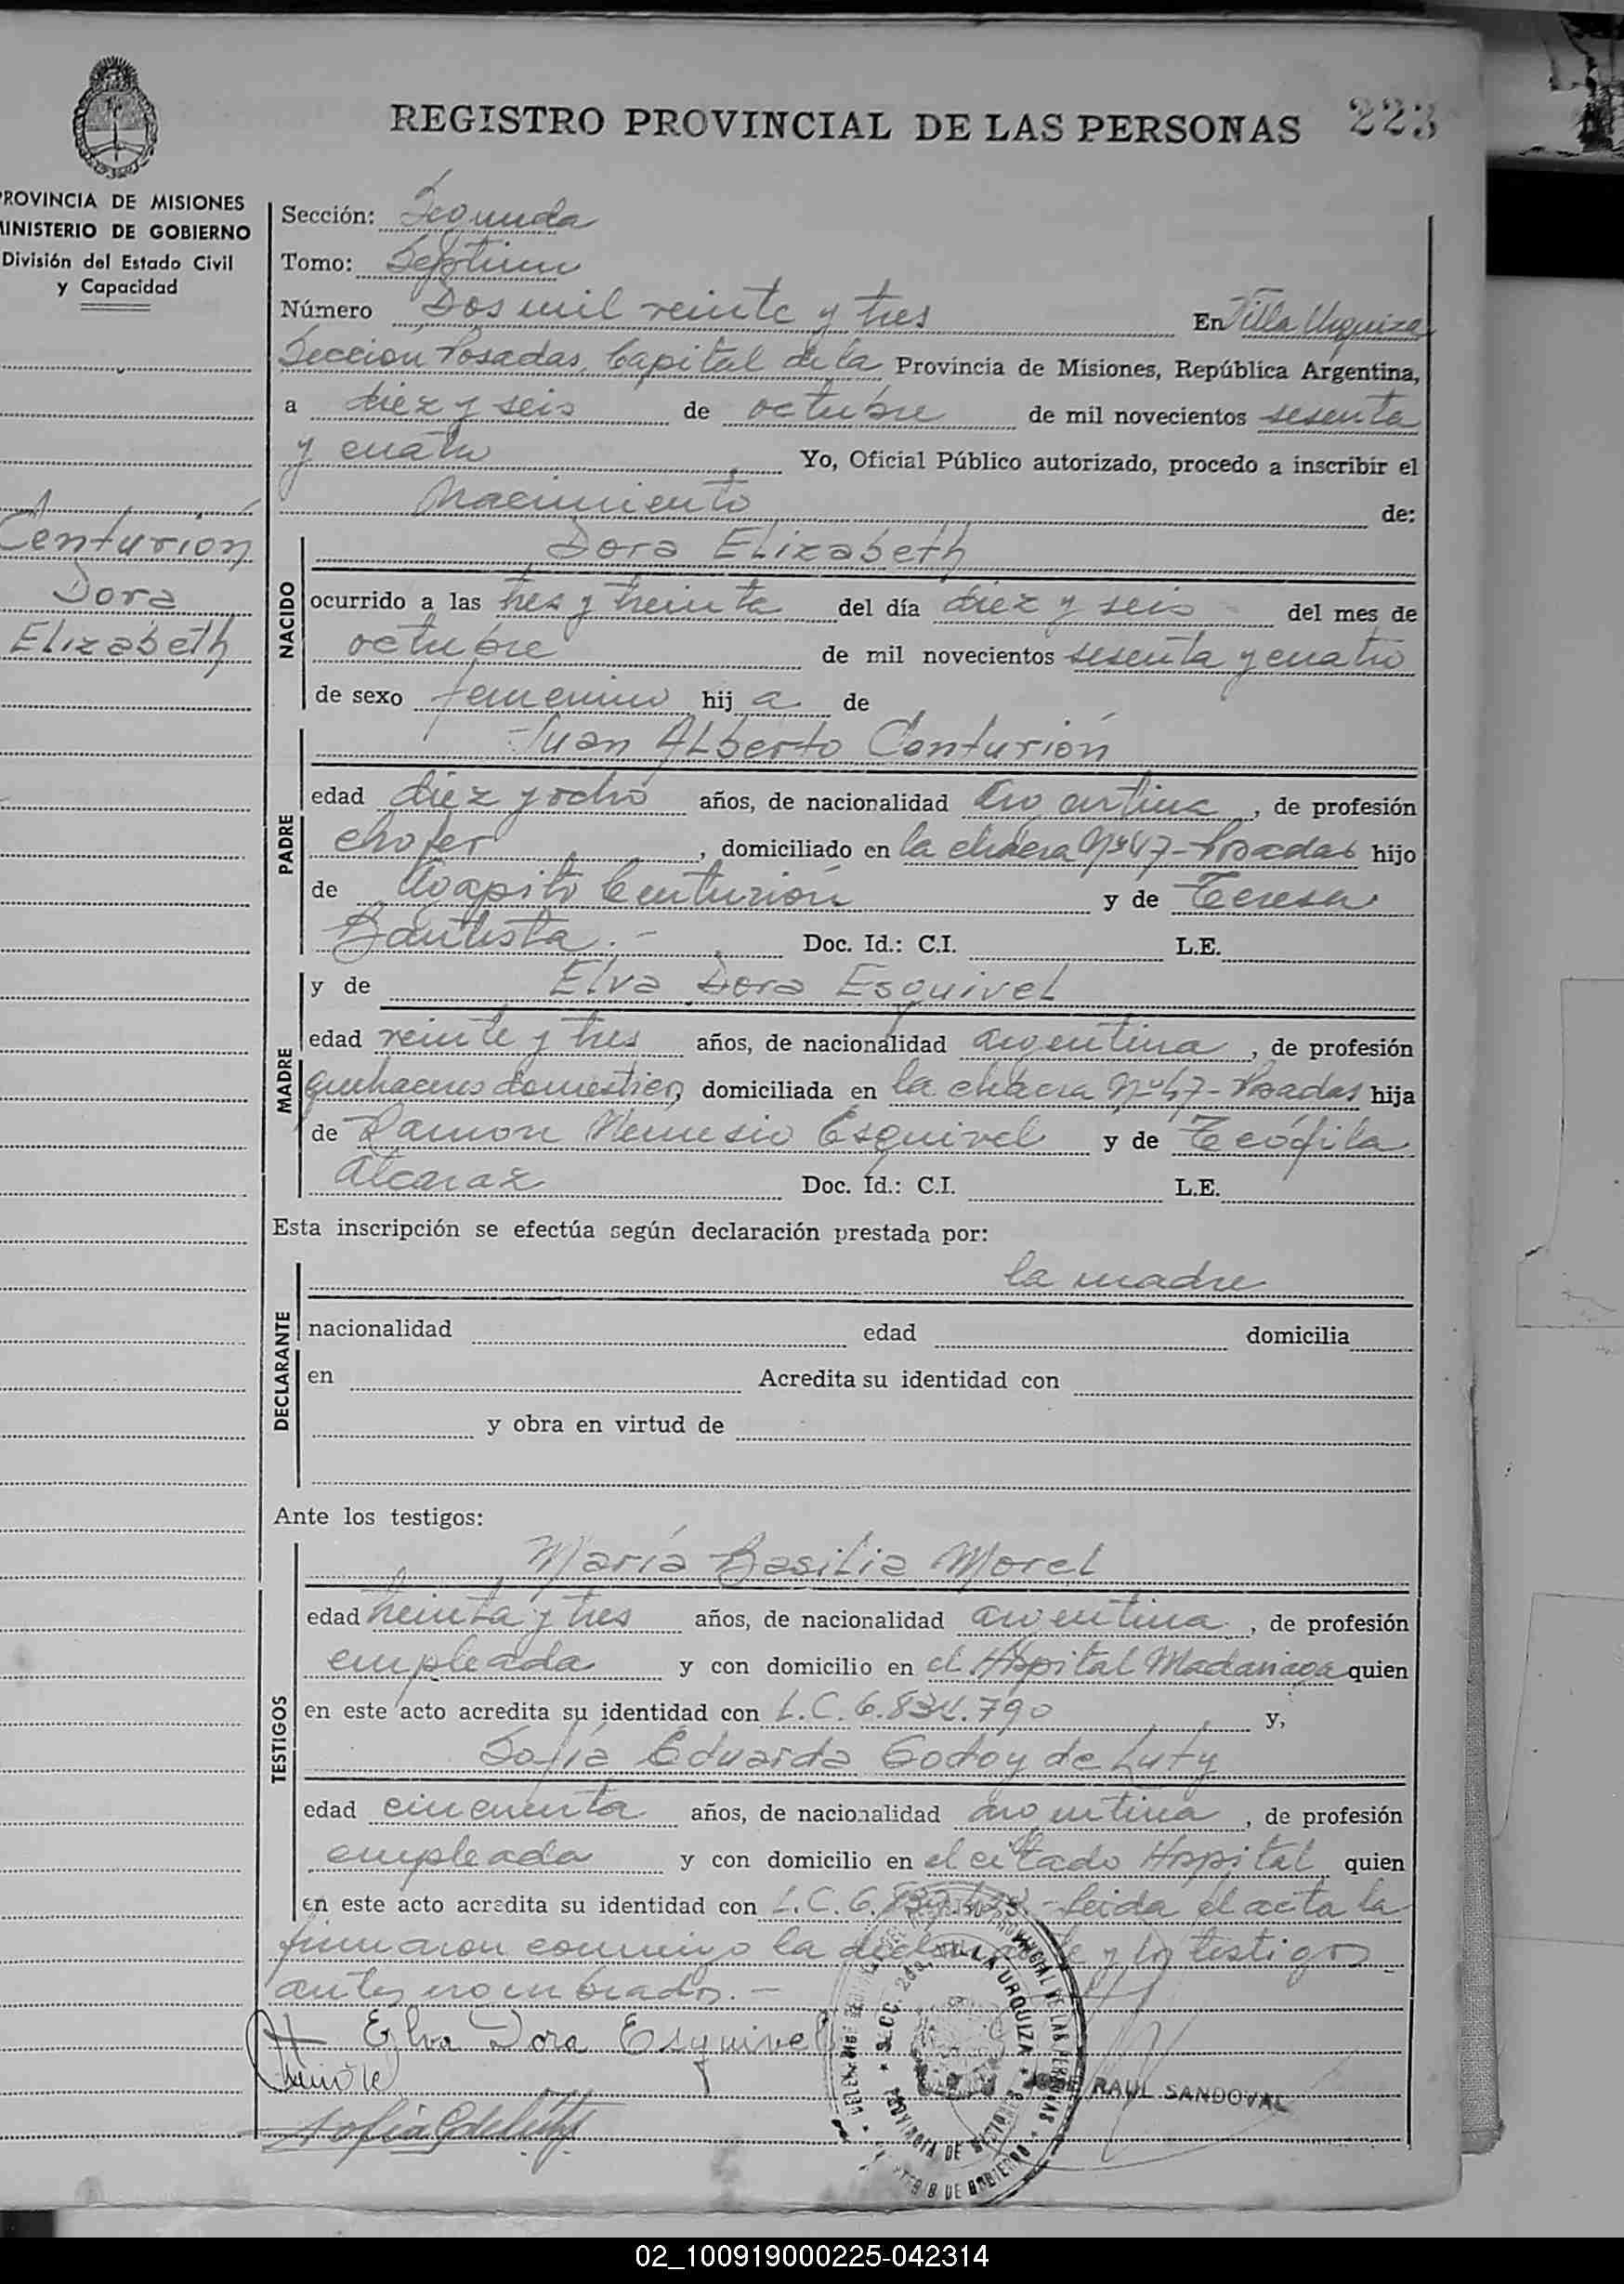 REGISTRO PROVINCIAL DE LAS PERSONAS 223
PROVINCIA DE MISIONES
MINISTERIO DE GOBIERNO
División del Estado Civil
y Capacidad
Centurion
Dora
Elizabeth
Sección: Segunda
Tomo: Septimo
Número Dos mil veinte y tres En Villa Urquiza
Sección Posadas, Capital de la Provincia de Misiones, República Argentina,
a diez y seis de octubre de mil novecientos sesenta
y cuatro Yo, Oficial Público autorizado, procedo a inscribir el
nacimiento de:
NACIDO
Dora Elizabeth
ocurrido a las tres y treinta del día diez y seis del mes de
octubre de mil novecientos sesenta y cuatro
de sexo femenino hij a de
PADRE
Juan Alberto Centurión
edad diez y ocho años, de nacionalidad argentina, de profesión
chofer, domiciliado en la chacra Nº 47 - Posadas hijo
de Agapito Centurión y de Teresa
Bautista.- Doc. Id.: C.I. L.E.
MADRE
y de Elva Dora Esquivel
edad veinte y tres años, de nacionalidad argentina, de profesión
quehaceres domesticos, domiciliada en la chacra Nº 47 - Posadas hija
de Ramon Nemesio Esquivel y de Teófila
Alcaraz Doc. Id.: C.I. L.E.
Esta inscripción se efectúa según declaración prestada por:
DECLARANTE
la madre
nacionalidad edad domicilia
en Acredita su identidad con
y obra en virtud de
Ante los testigos:
TESTIGOS
María Basilia Morel
edad treinta y tres años, de nacionalidad argentina, de profesión
empleada y con domicilio en el Hospital Madariaga quien
en este acto acredita su identidad con L.C. 6.834.790 y,
Sofía Eduarda Godoy de Luty
edad cincuenta años, de nacionalidad argentina, de profesión
empleada y con domicilio en el citado Hospital quien
en este acto acredita su identidad con L.C. 6. - Leida el acta la
firmaron conmigo la declarante y los testigos
antes nombrados.-
Elva Dora Esquivel
RAUL SANDOVAL
VILLA URQUIZA
PROVINCIA DE MISIONES
02_100919000225-042314